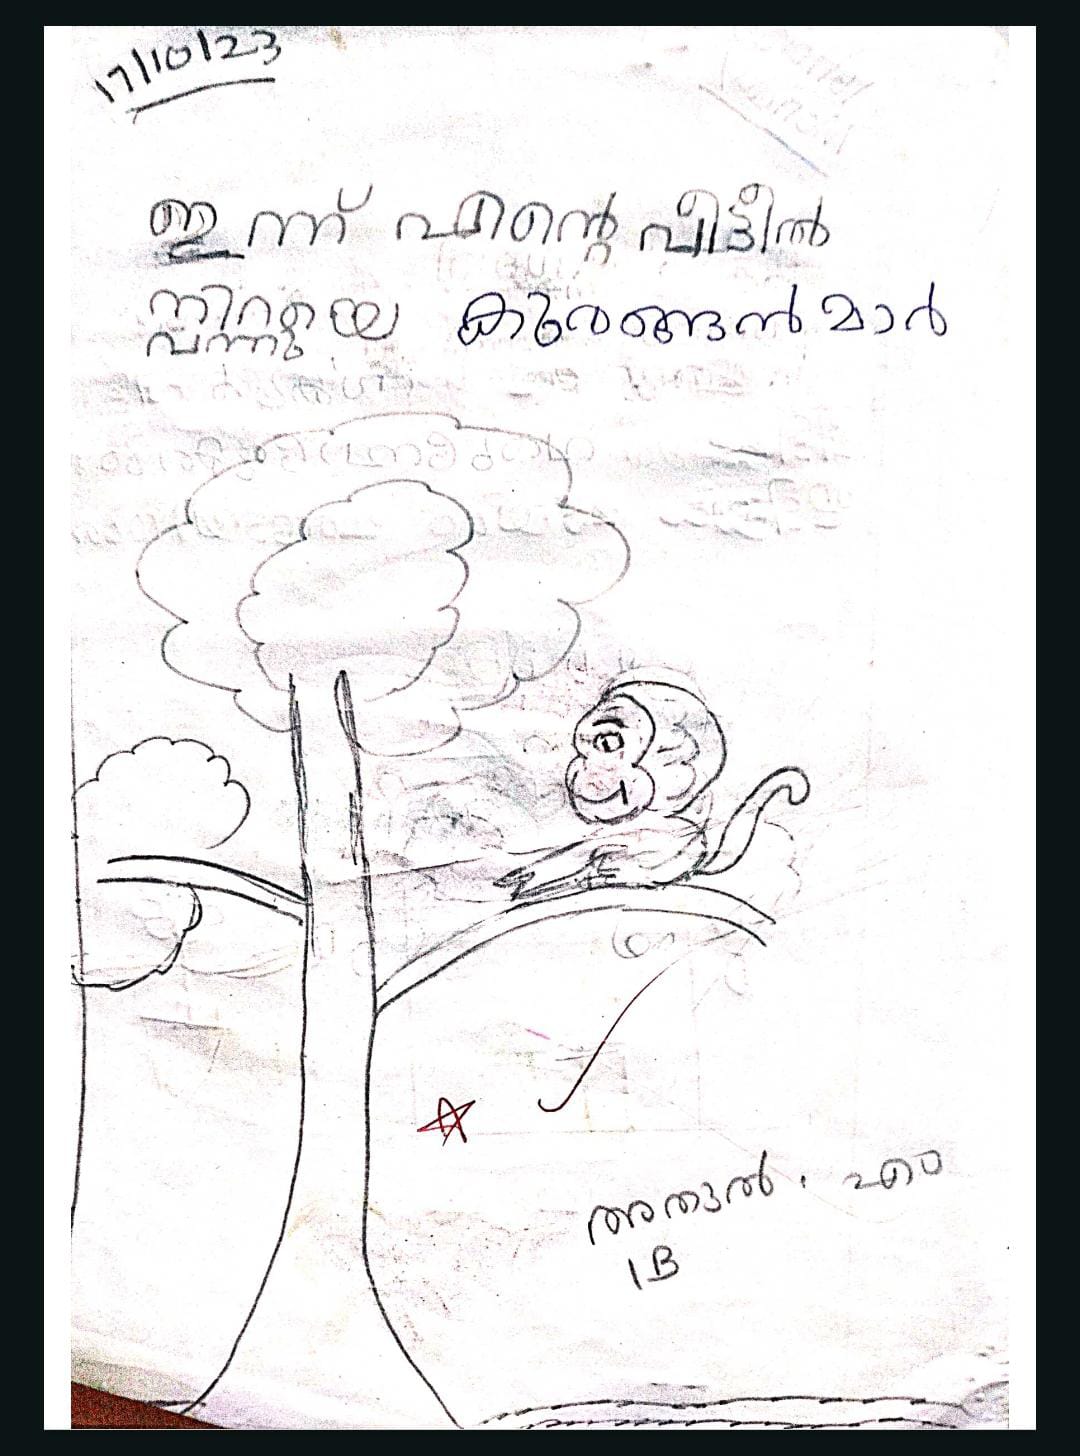 17/10/23
ഇന്ന് എിന്റെ വീട്ടീൽ
നിറയെ കുരങ്ങൻമാർ
വന്നു
അതുൽ. എം
1B